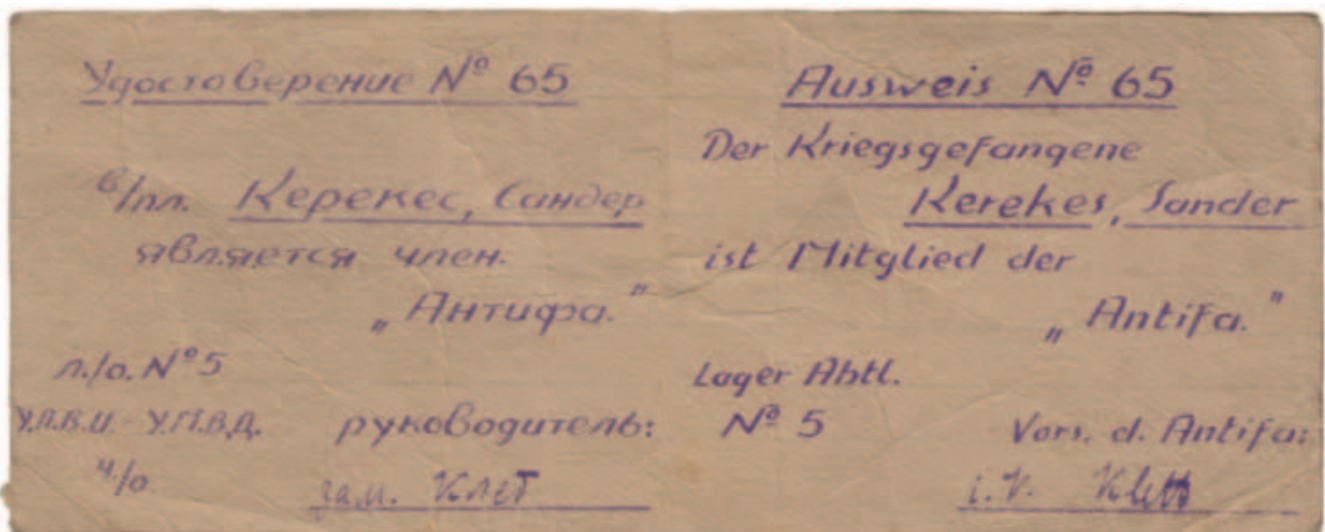 Удостоверение № 65
в/пл. Керекес, Сандер
является член.
„Антифа."
л./о. № 5
У.Л.В.И. - У.М.В.Д.
ч/о
руководитель:
зам. Клет
Ausweis № 65
Der Kriegsgefangene
Kerekes, Sander
ist Mitglied der
„Antifa."
Lager Abtl.
№ 5
Vors. d. Antifa:
i.V. Klett